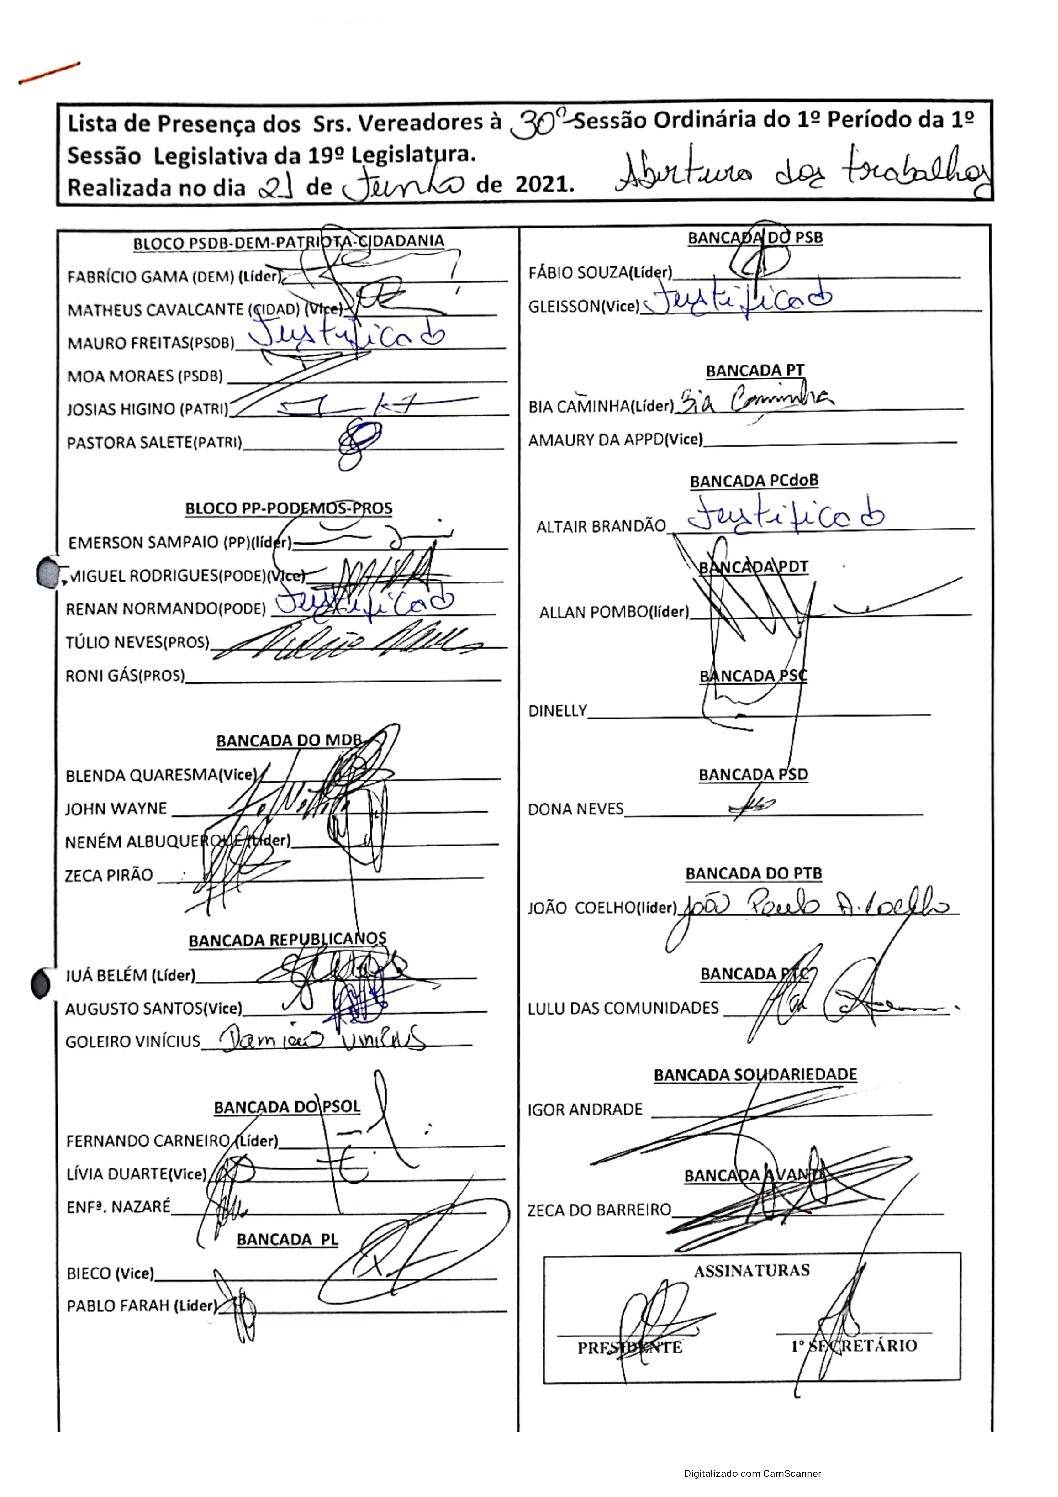 Lista de Presença dos Srs. Vereadores à 30ª Sessão Ordinária do 1º Período da 1º
Sessão Legislativa da 19º Legislatura.
Realizada no dia 21 de Junho de 2021. Abertura dos trabalhos
BLOCO PSDB-DEM-PATRIOTA-CIDADANIA
FABRÍCIO GAMA (DEM) (Líder)
MATHEUS CAVALCANTE (CIDAD) (Vice)
MAURO FREITAS(PSDB) Justificado
MOA MORAES (PSDB)
JOSIAS HIGINO (PATRI)
PASTORA SALETE(PATRI)
BLOCO PP-PODEMOS-PROS
EMERSON SAMPAIO (PP)(líder)
MIGUEL RODRIGUES(PODE)(Vice)
RENAN NORMANDO(PODE) Justificado
TÚLIO NEVES(PROS)
RONI GÁS(PROS)
BANCADA DO MDB
BLENDA QUARESMA(Vice)
JOHN WAYNE
NENÉM ALBUQUERQUE(Líder)
ZECA PIRÃO
BANCADA REPUBLICANOS
JUÁ BELÉM (Líder)
AUGUSTO SANTOS(Vice)
GOLEIRO VINÍCIUS Damião Vinícius
BANCADA DO PSOL
FERNANDO CARNEIRO(Líder)
LÍVIA DUARTE(Vice)
ENFª. NAZARÉ
BANCADA PL
BIECO (Vice)
PABLO FARAH (Líder)
BANCADA DO PSB
FÁBIO SOUZA(Líder)
GLEISSON(Vice) Justificado
BANCADA PT
BIA CAMINHA(Líder) Bia Caminha
AMAURY DA APPD(Vice)
BANCADA PCdoB
ALTAIR BRANDÃO Justificado
BANCADA PDT
ALLAN POMBO(líder)
BANCADA PSC
DINELLY
BANCADA PSD
DONA NEVES
BANCADA DO PTB
JOÃO COELHO(líder) João Paulo A. Coelho
BANCADA PTC
LULU DAS COMUNIDADES
BANCADA SOLIDARIEDADE
IGOR ANDRADE
BANCADA AVANTE
ZECA DO BARREIRO
ASSINATURAS
PRESIDENTE 1º SECRETÁRIO
Digitalizado com CamScanner